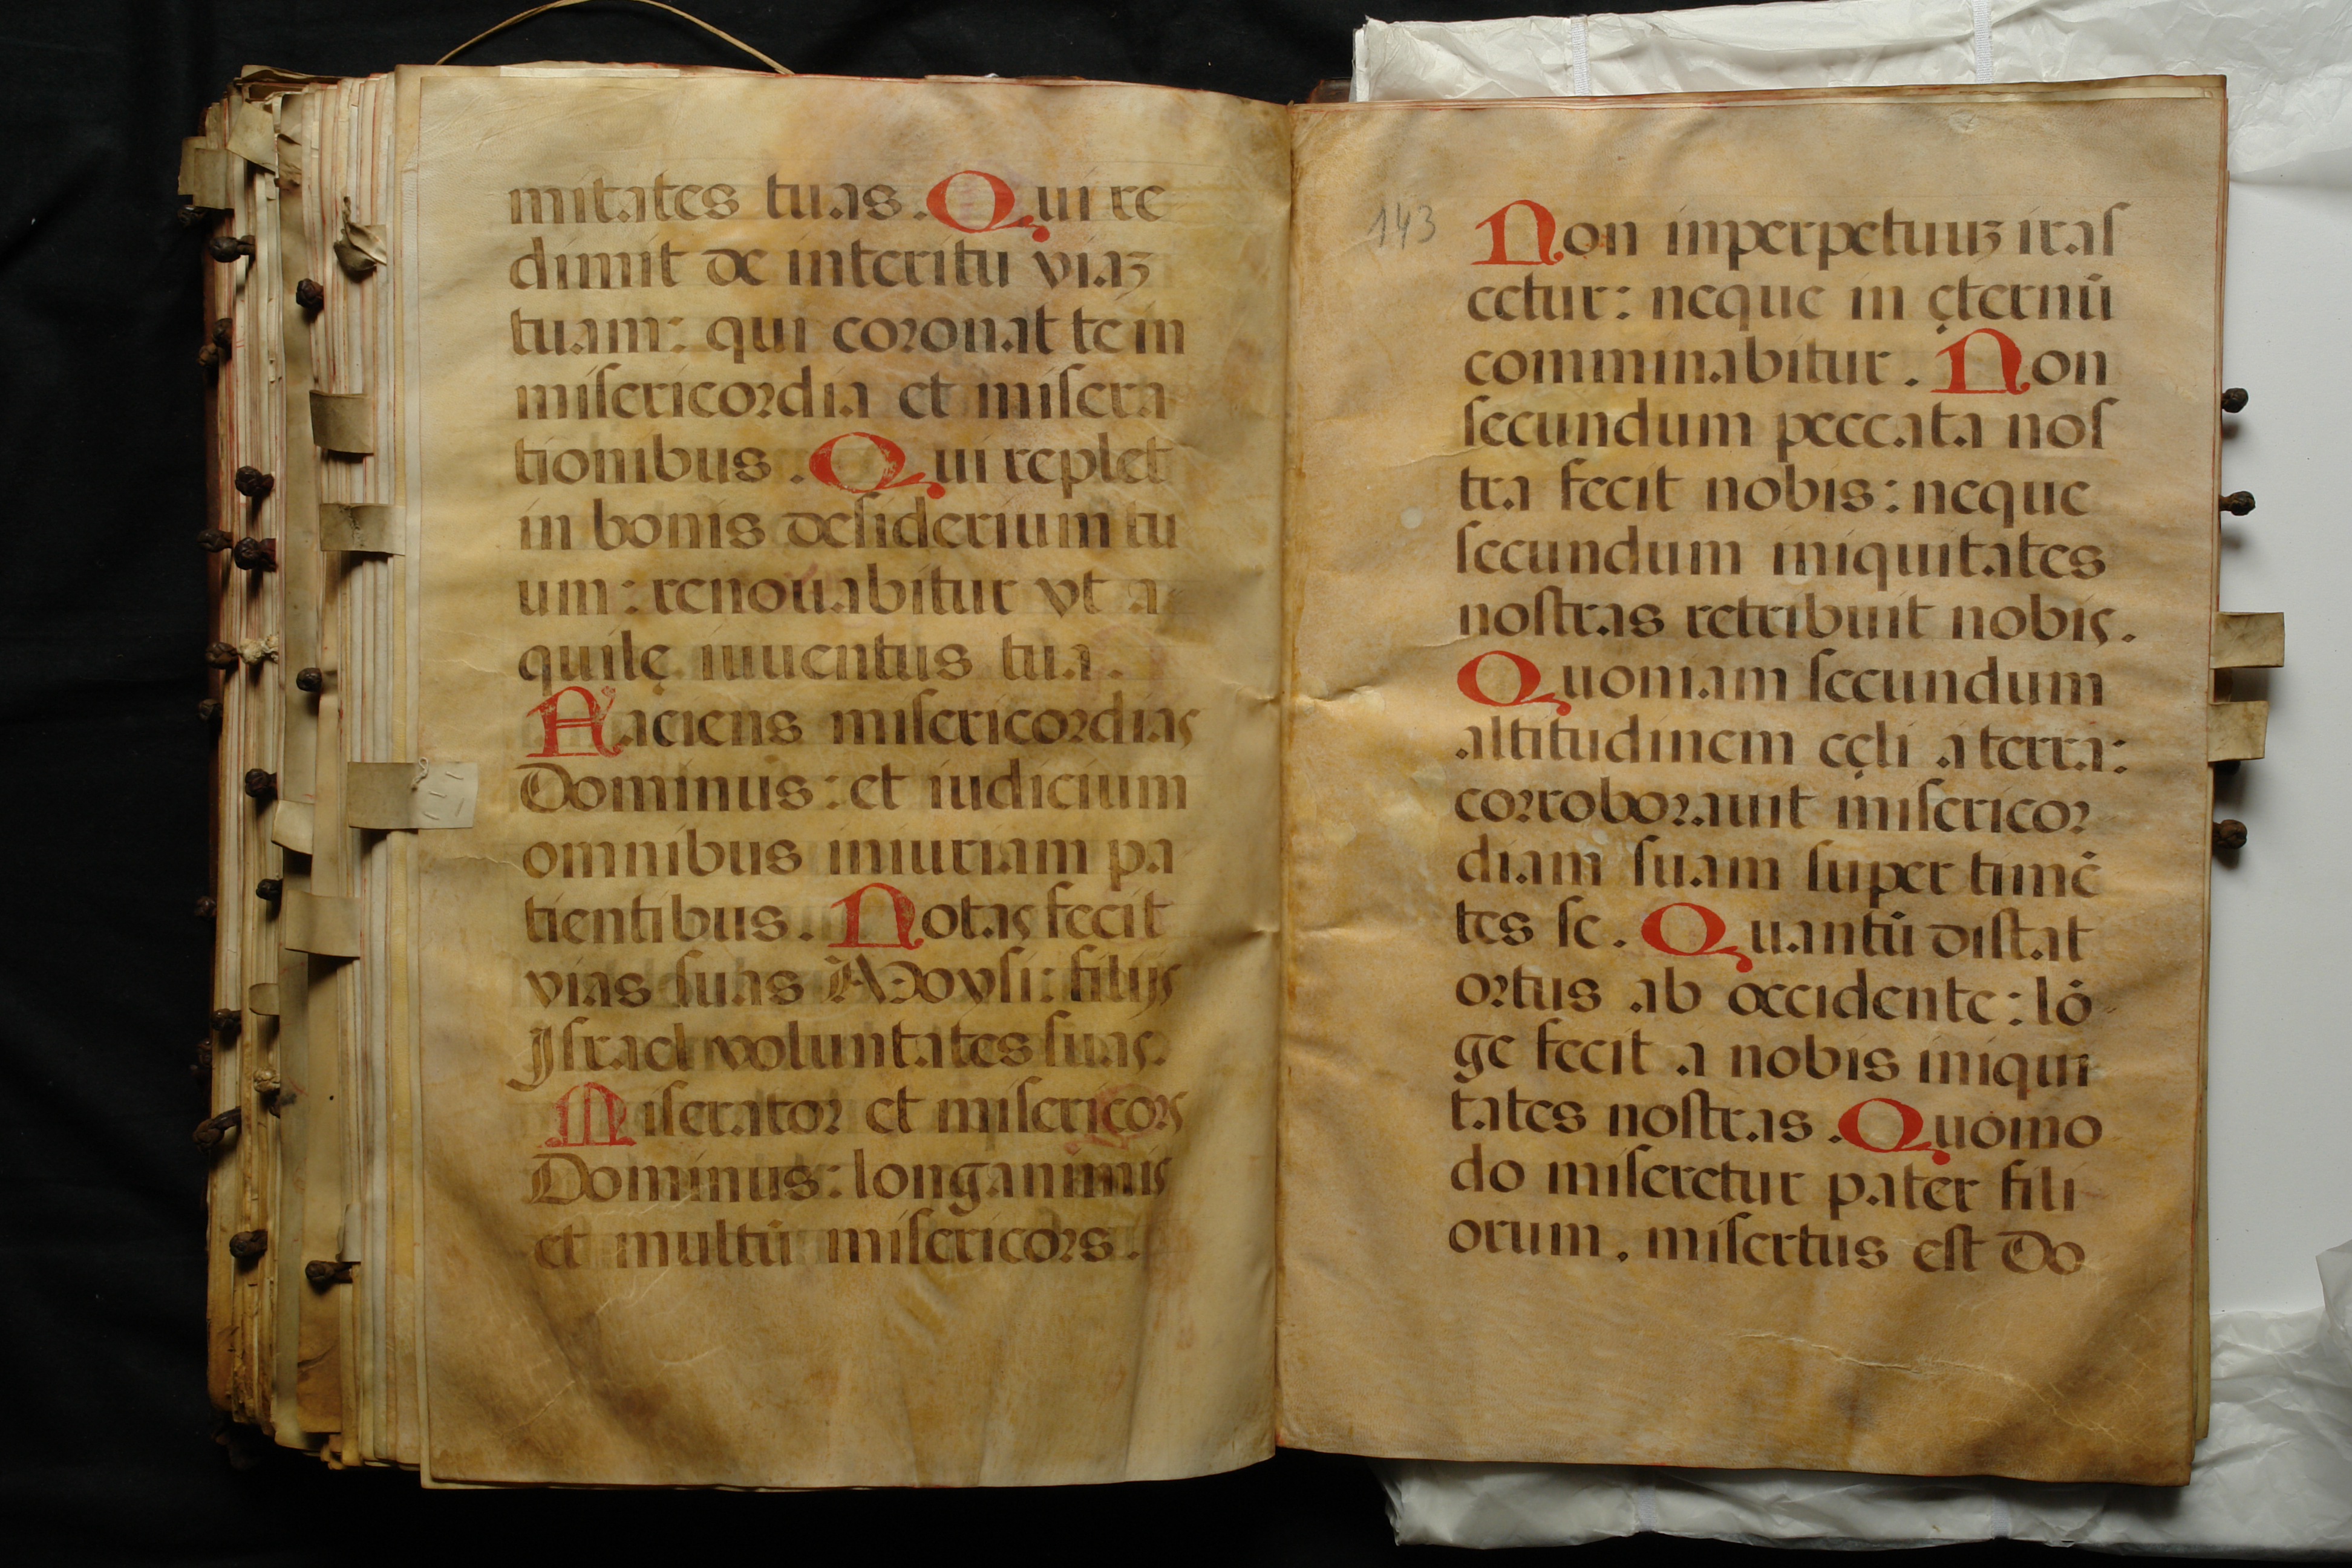 mitates tuas. Qui re
dimit de interitu viaʒ
tuam: qui coronat te in
misericordia et misera
tionibus. Qui replet
in bonis desiderium tu
um: renouabitur vt a-
quilę iuuentus tua.
Faciens misericordias
Dominus: et iudicium
omnibus iniuriam pa
tientibus. Notas fecit
vias suas Moysi: filijs
Israel voluntates suas.
Miserator et misericors
Dominus: longanimis
et multū misericors.
143
Non inperpetuuʒ iras
cetur: neque in ęternū
comminabitur. Non
secundum peccata nos
tra fecit nobis: neque
secundum iniquitates
nostras retribuit nobis.
Quoniam secundum
altitudinem cęli a terra:
corroborauit misericor
diam suam super timē
tes se. Quantū distat
ortus ab occidente: lō-
ge fecit a nobis iniqui
tates nostras. Quomo
do miseretur pater fili
orum, misertus est Do